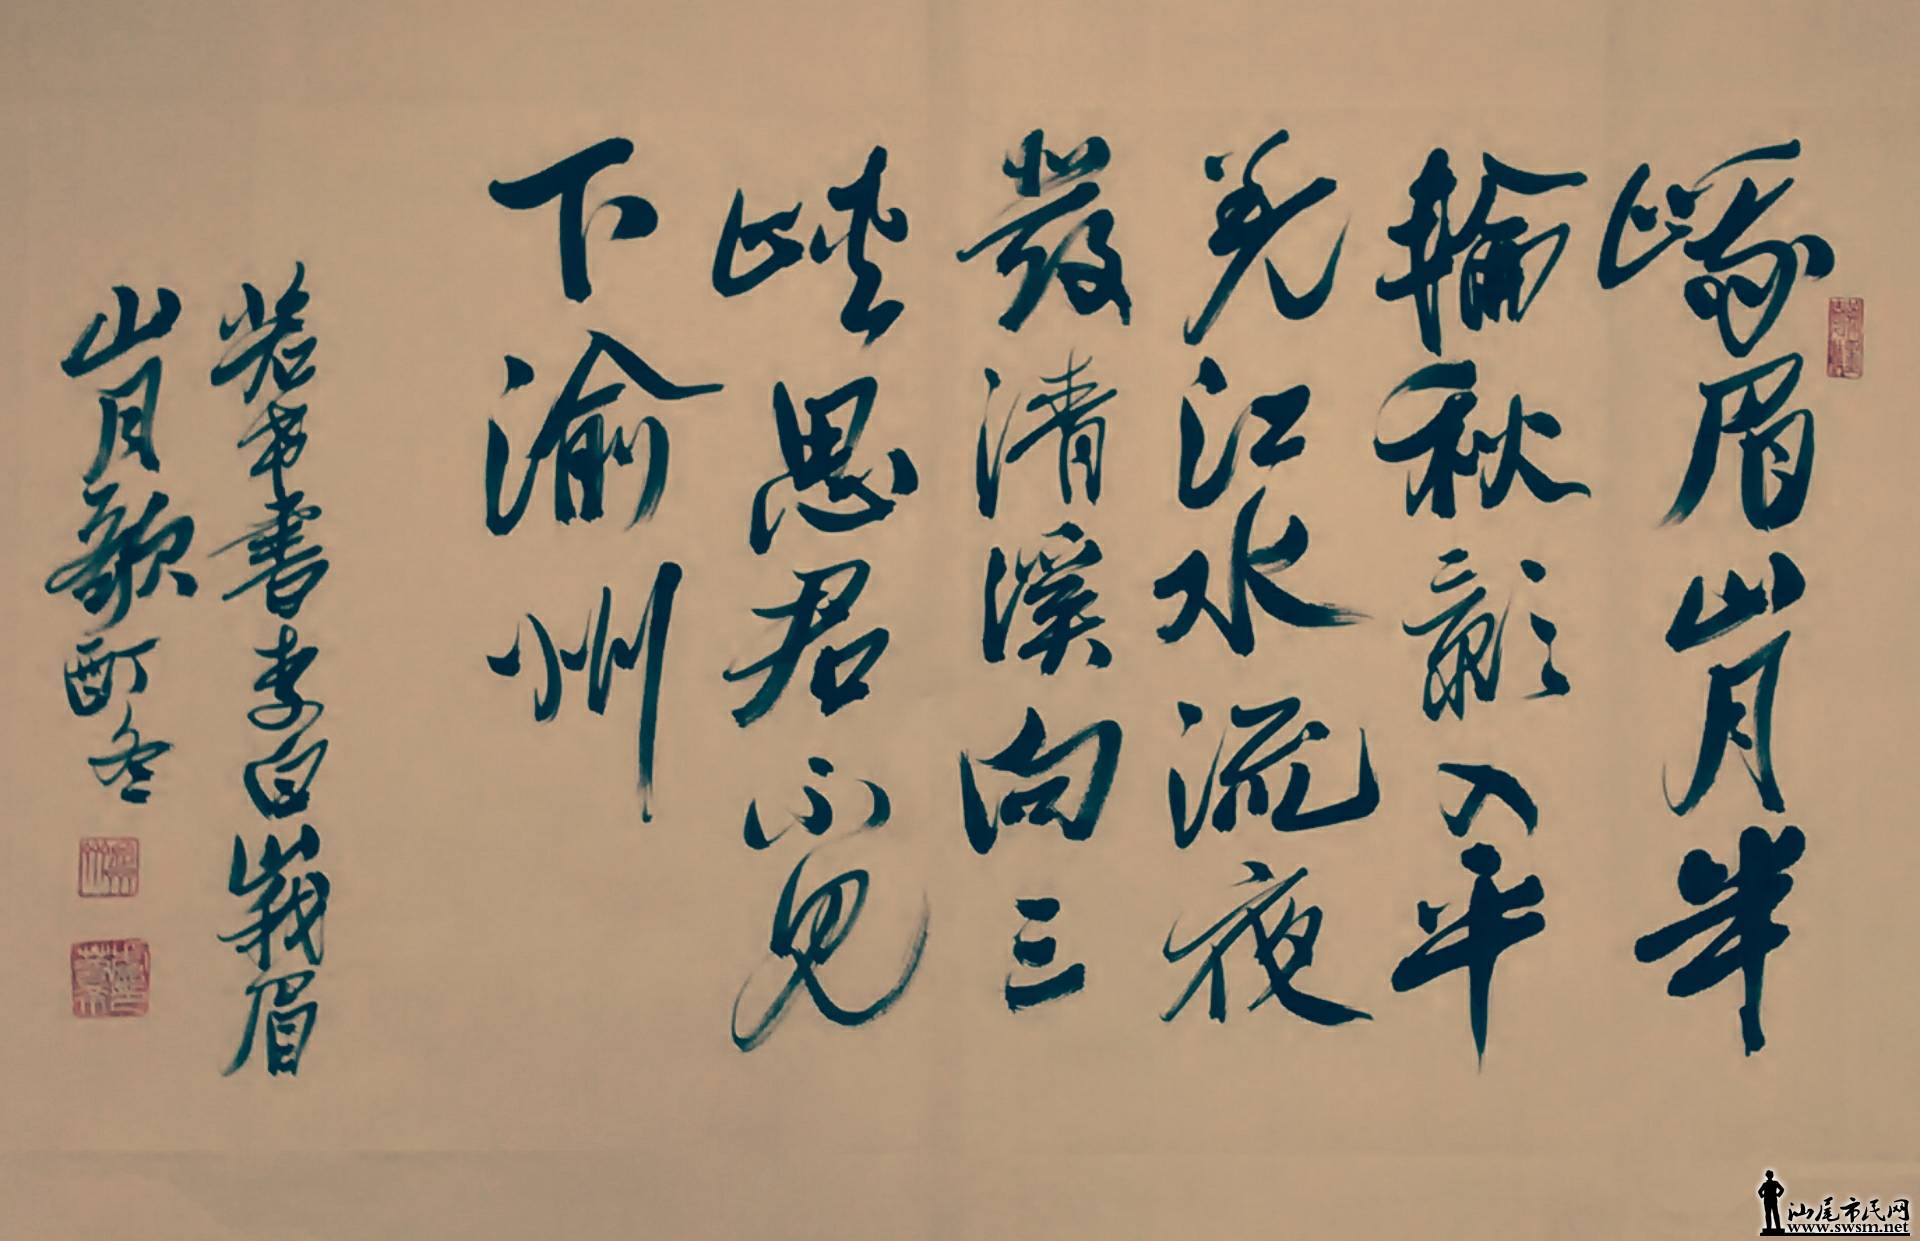 峨眉山月半
輪秋影入平
羌江水流夜
發清溪向三
峽思君不見
下渝州
書李白峨眉
山月歌
汕尾市民网
www.swsm.net